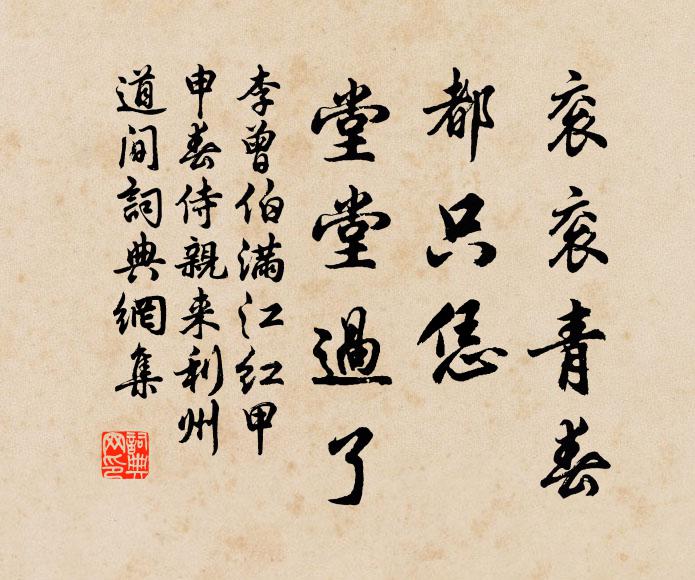 衮衮青春
都只恁
堂堂過了
李曾伯滿江紅甲
申春侍親来利州
道間詞典網集
詞典
网印